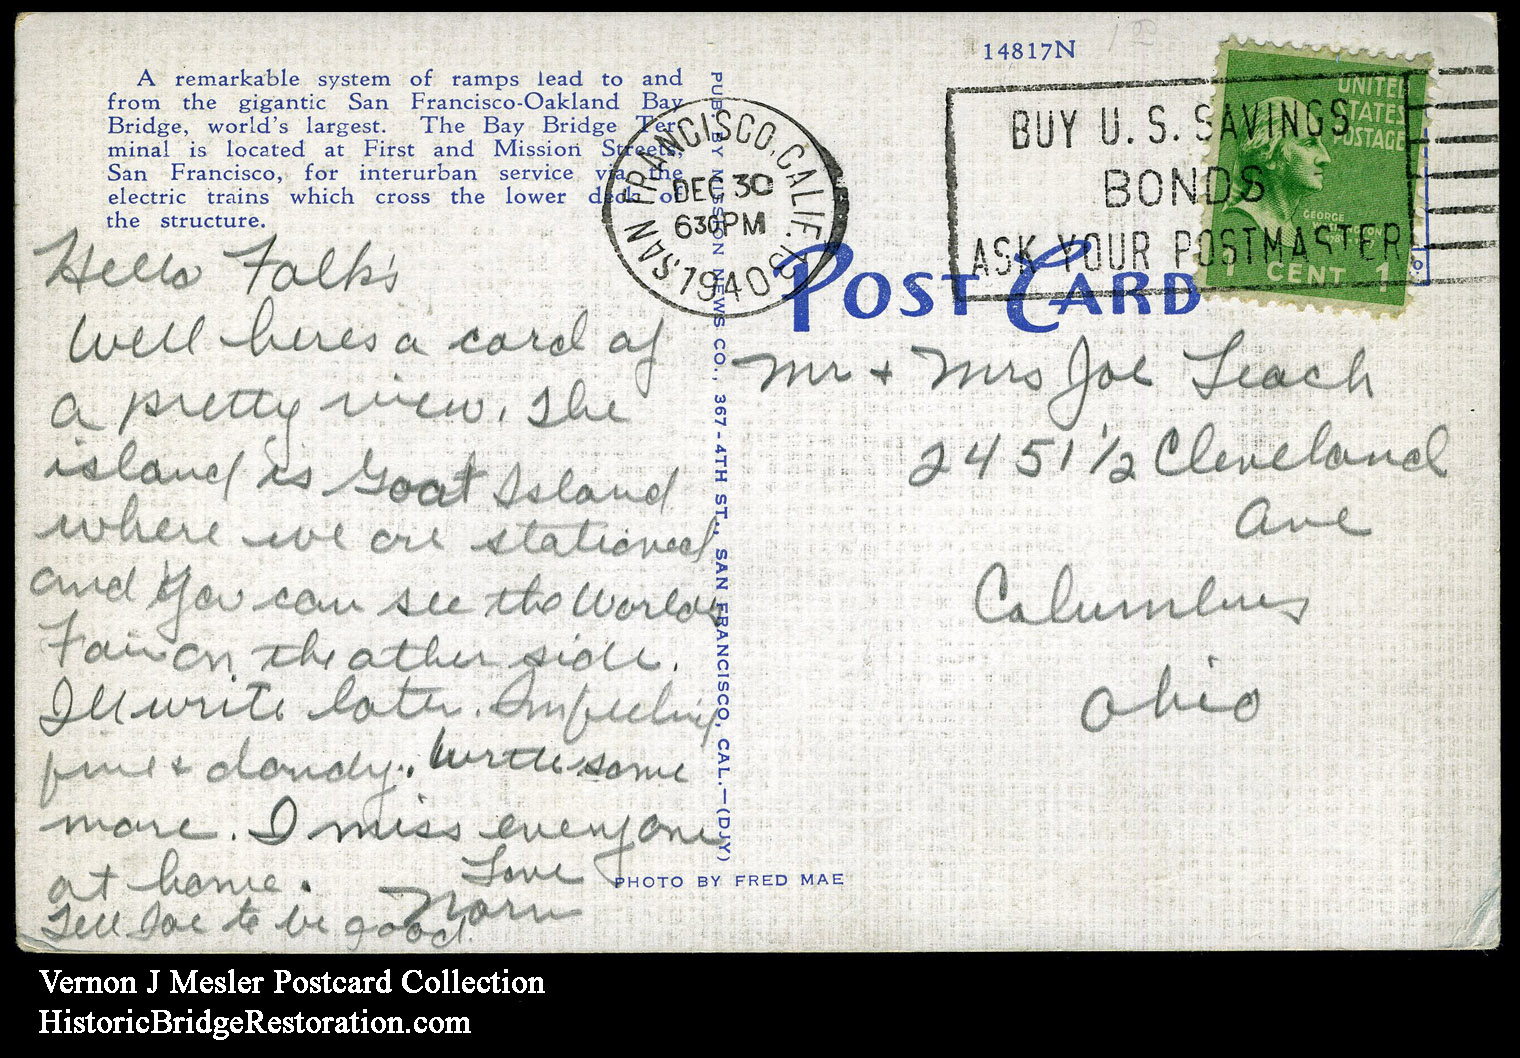 A remarkable system of ramps lead to and
from the gigantic San Francisco-Oakland Bay
Bridge, world's largest. The Bay Bridge Ter-
minal is located at First and Mission Streets,
San Francisco, for interurban service via the
electric trains which cross the lower deck of
the structure.
Hello Folks
Well heres a card of
a pretty view. The
island is Goat Island
where we are stationed
and you can see the Worlds
Fair on the other side.
Ill write later. Im feeling
fine & dandy. Write some
more. I miss everyone
at home.
Love
Norm
Tell Joe to be good.
PUB. BY MISSION NEWS CO., 367-4TH ST., SAN FRANCISCO, CAL.—(DJY)
PHOTO BY FRED MAE
14817N
SAN FRANCISCO, CALIF.
DEC 30
630PM
1940
BUY U. S. SAVINGS
BONDS
ASK YOUR POSTMASTER
UNITED
STATES
POSTAGE
GEORGE
WASHINGTON
1 CENT 1
POST CARD
Mr + Mrs Joe Leach
2451 1/2 Cleveland
Ave
Columbus
Ohio
Vernon J Mesler Postcard Collection
HistoricBridgeRestoration.com